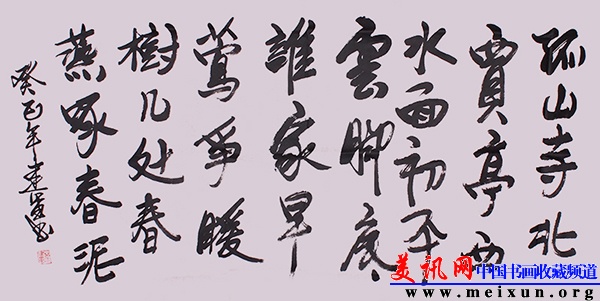 孤山寺北
賈亭西
水面初平
雲脚底
誰家早
莺爭暖
樹几处春
燕啄春泥
癸巳年
美讯网 中国书画收藏频道
www.meixun.org